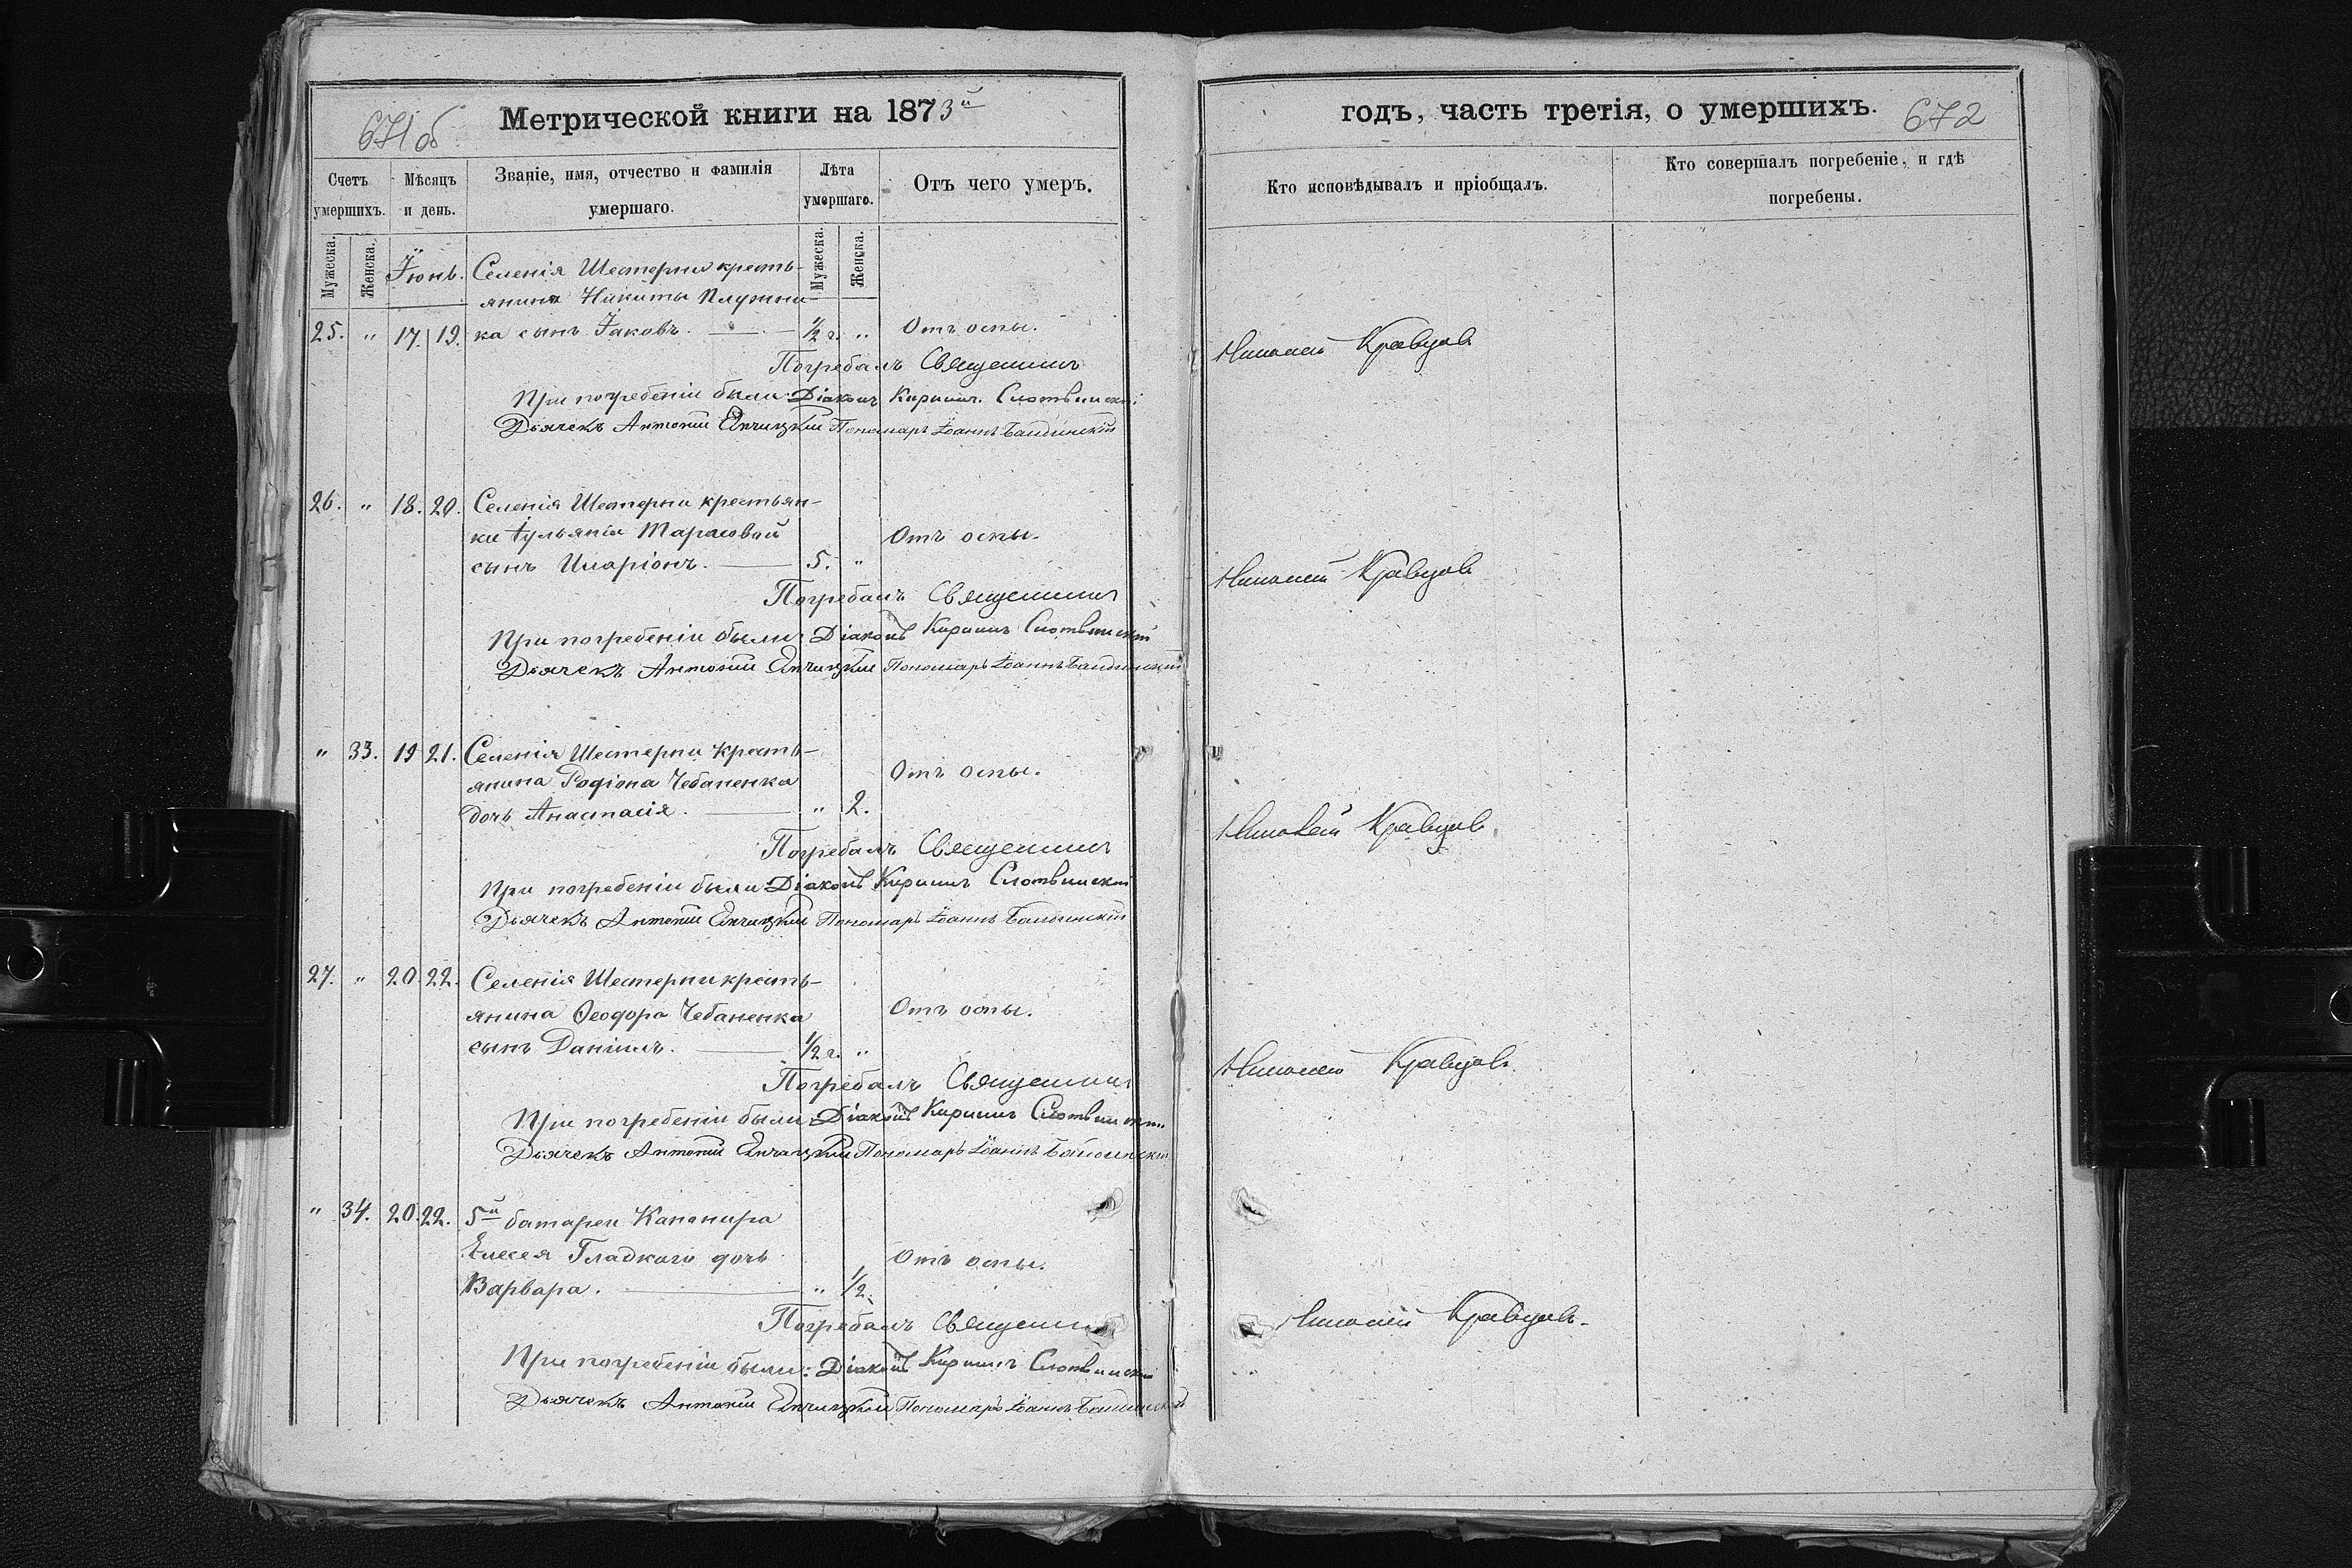 671 об
Метрической книги на 1873й
годъ, часть третія, о умершихъ.
672
Счетъ умершихъ.
Мѣсяцъ и день.
Званіе, имя, отчество и фамилія умершаго.
Лѣта умершаго.
Отъ чего умеръ.
Кто исповѣдывалъ и пріобщалъ.
Кто совершалъ погребеніе, и гдѣ погребены.
Мужеска.
Женска.
Мужеска.
Женска.
Іюнь. Селенія Шестерни кресть-
янина Никиты Плужни-
25. " 17. 19. ка сынъ Іаковъ. ½ г. " Отъ оспы.
Погребалъ Священникъ Николай Кравцовъ
При погребеніи были: Діаконъ Кириллъ Слотвинскій
Дьячекъ Антоній Пономарь Іоаннъ
26. " 18. 20. Селенія Шестерни крестьян-
ки Іульяніи Тарасовой Отъ оспы.
сынъ Иларіонъ. 5. "
Погребалъ Священникъ Николай Кравцовъ
При погребеніи были: Діаконъ Кириллъ Слотвинскій
Дьячекъ Антоній Пономарь Іоаннъ
" 33. 19 21. Селенія Шестерни кресть-
янина Родіона Чебаненка Отъ оспы.
дочь Анастасія. " 2.
Погребалъ Священникъ Николай Кравцовъ
При погребеніи были Діаконъ Кириллъ Слотвинскій
Дьячекъ Антоній Пономарь Іоаннъ
27. " 20. 22. Селенія Шестерни кресть-
янина Ѳеодора Чебаненка Отъ оспы.
сынъ Даніилъ. ½ г. "
Погребалъ Священникъ Николай Кравцовъ.
При погребеніи были: Діаконъ Кириллъ Слотвинскій
Дьячекъ Антоній Пономарь Іоаннъ
" 34. 20. 22. 5й батареи Канонира
Гладкаго дочь Отъ оспы.
Варвара. " ½.
Погребалъ Священникъ Николай Кравцовъ.
При погребеніи были: Діаконъ Кириллъ Слотвинскій
Дьячекъ Антоній Пономарь Іоаннъ